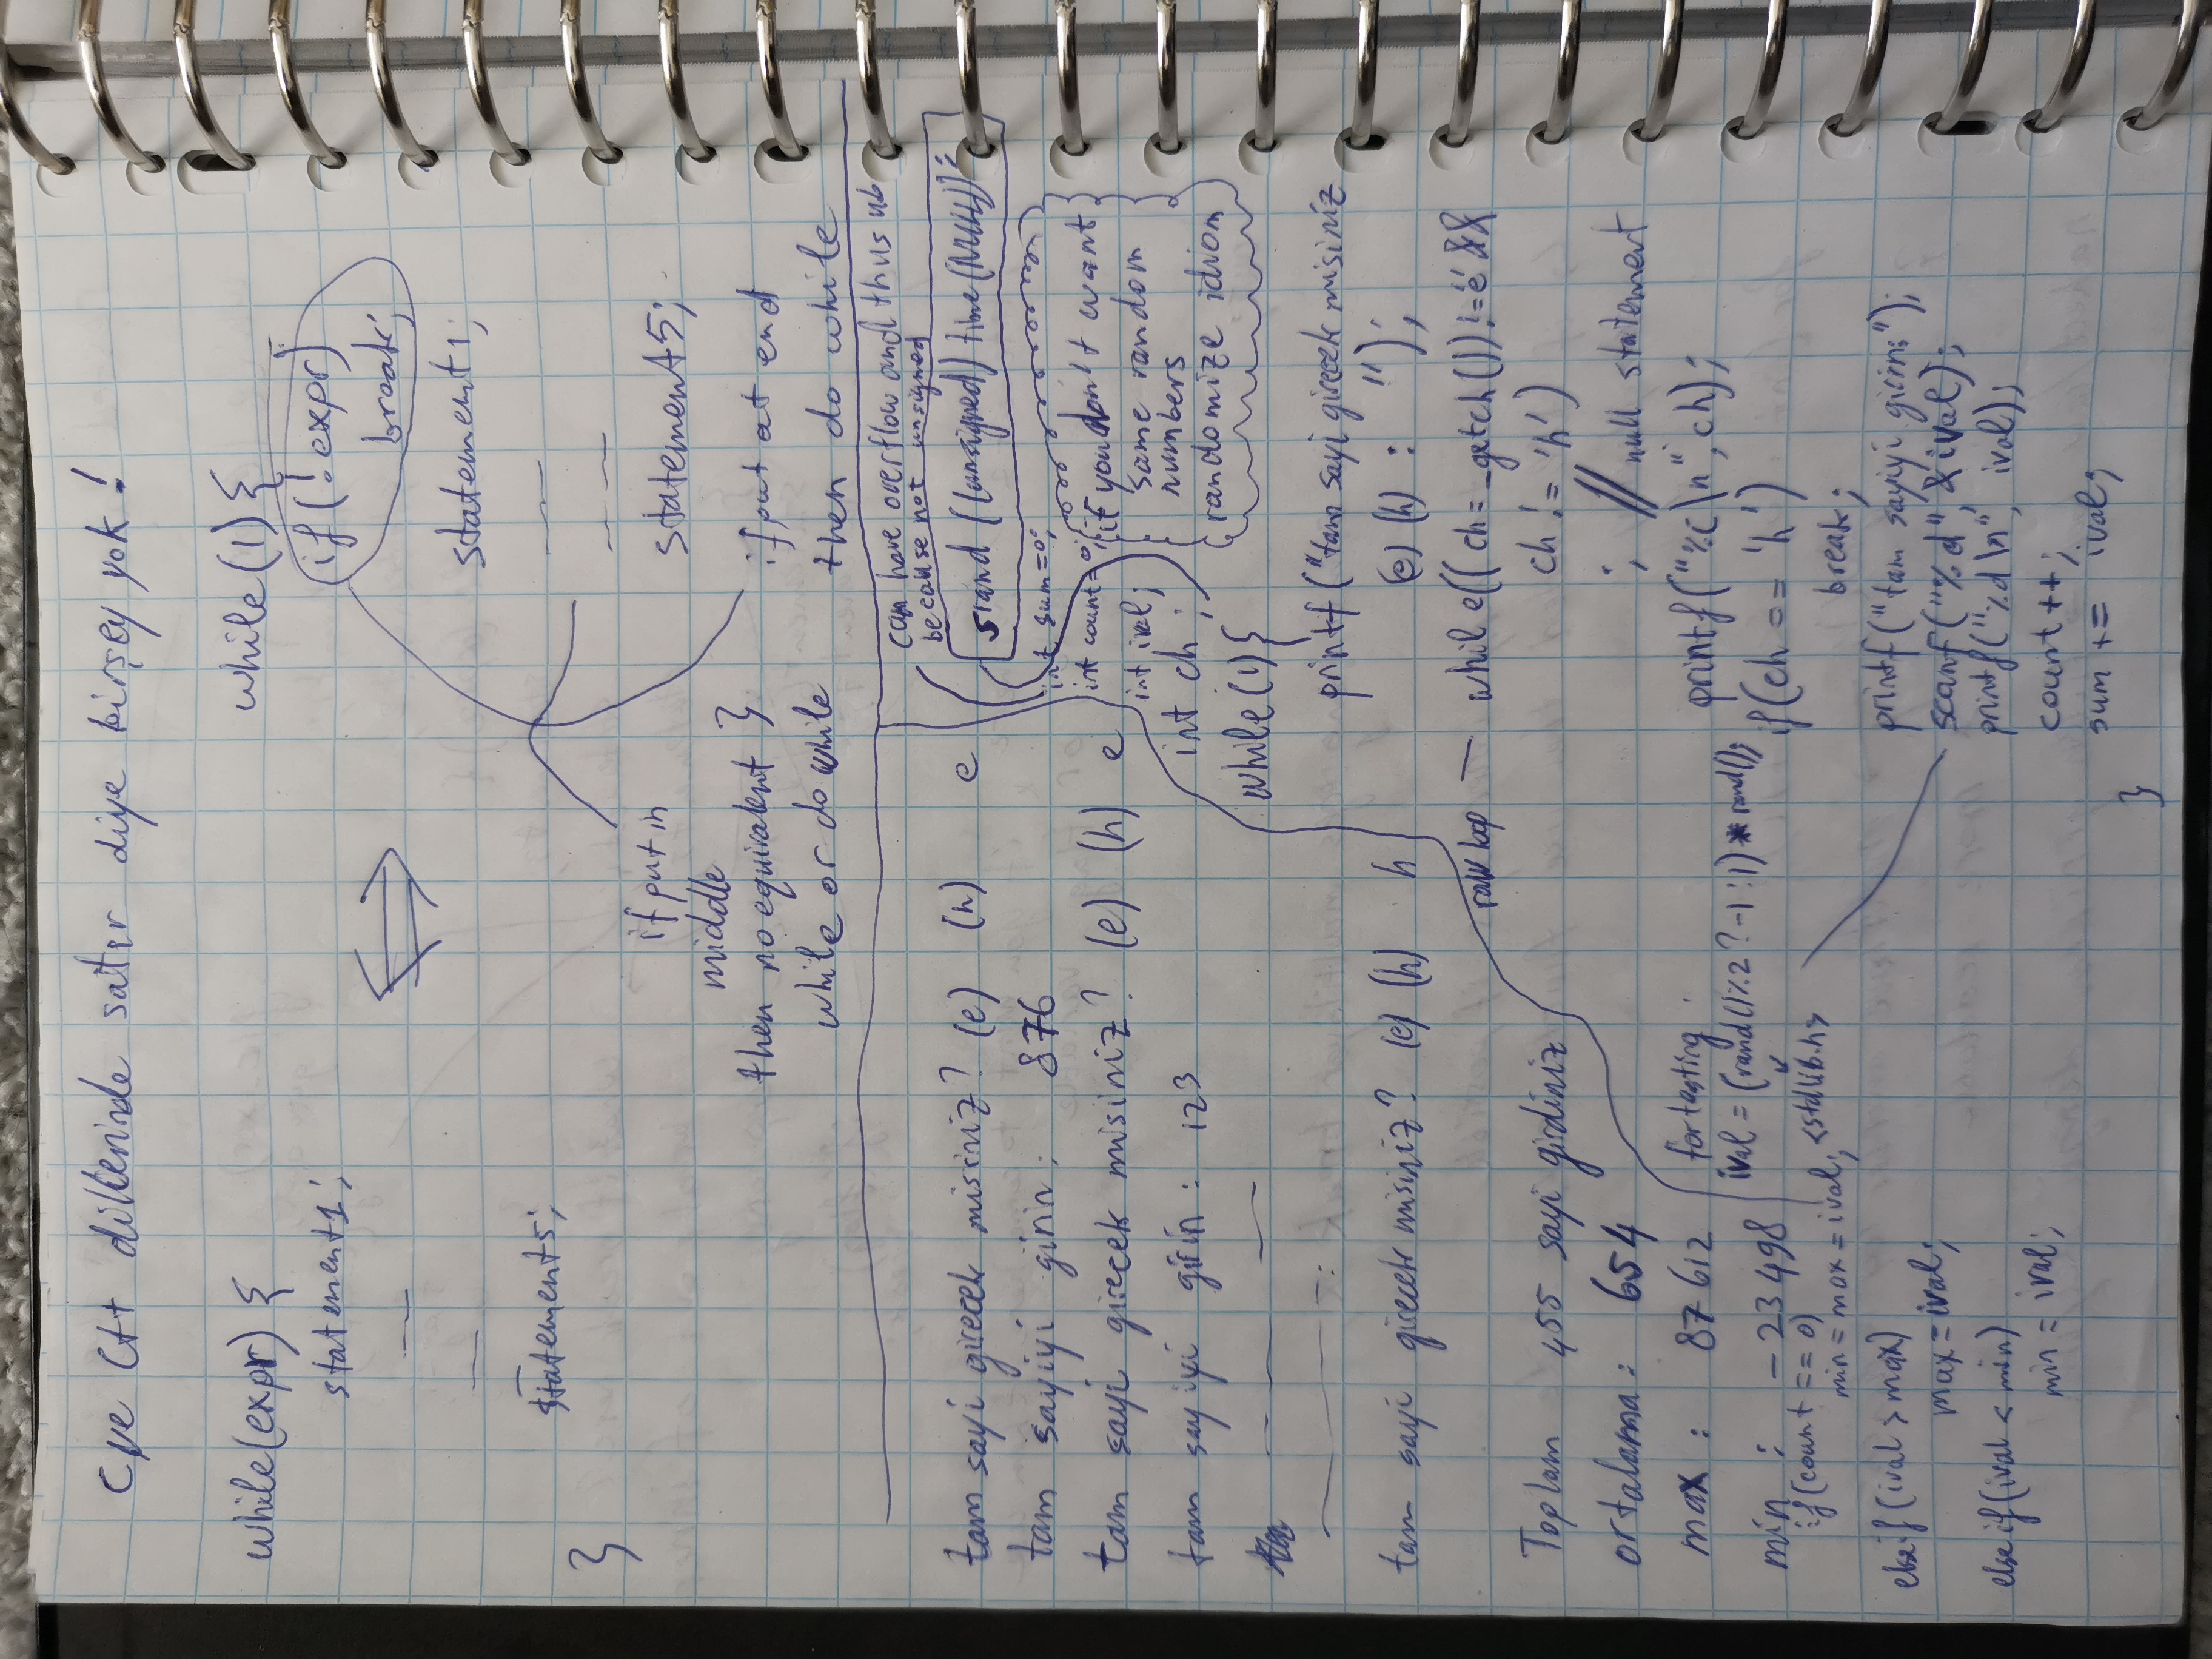 C ve C++ dillerinde satır diye birşey yok!
while(expr) {
statement1;
statement5;
}
while(1){
if(!expr)
break;
statement1;
statement5;
}
if put in
middle
then no equivalent
while or do while
if put at end
then do while
tam sayi girecek misiniz? (e) (h) e
tam sayiyi girin: 876
tam sayi girecek misiniz? (e) (h) e
tam sayiyi girin: 123
tam sayi girecek misiniz? (e) (h) h
Toplam 455 sayi girdiniz
ortalama: 654
max : 87612
min : -23498
if(count == 0)
min = max = ival;
else if(ival > max)
max = ival;
else if(ival < min)
min = ival;
for testing
ival = (rand()%2 ? -1 : 1) * rand();
<stdlib.h>
can have overflow and thus ub
because not unsigned
srand((unsigned) time(NULL));
if you don't want
same random
numbers
randomize idiom
int sum=0;
int count=0;
int ival;
int ch;
while(1){
printf("tam sayi girecek misiniz
(e) (h) : ");
raw loop — while((ch = _getch()) != 'e' &&
ch != 'h')
; // null statement
printf("%c\n", ch);
if(ch == 'h')
break;
printf("tam sayiyi girin:");
scanf("%d", &ival);
printf("%d\n", ival);
count++;
sum += ival;
}